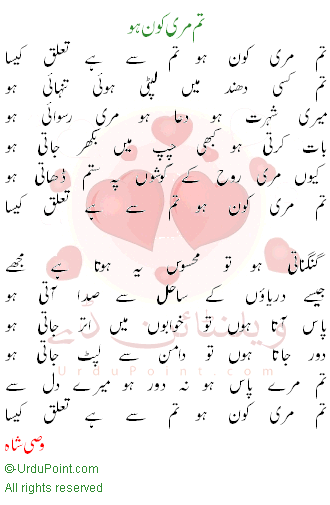 تم مری کون ہو
تم مری کون ہو تم سے ہے تعلق کیسا
تم کسی دھند میں لپٹی ہوئی تنہائی ہو
میری شہرت ہو دعا ہو مری رسوائی ہو
بات کرتی ہو کبھی چپ میں بکھر جاتی ہو
کیوں مری روح کے گوشوں پہ ستم ڈھاتی ہو
تم مری کون ہو تم سے ہے تعلق کیسا
گنگناتی ہو تو محسوس یہ ہوتا ہے مجھے
جیسے دریاؤں کے ساحل سے صدا آتی ہو
پاس آتا ہوں تو خوابوں میں اتر جاتی ہو
دور جاتا ہوں تو دامن سے لپٹ جاتی ہو
تم مرے پاس ہو نہ دور ہو میرے دل سے
تم مری کون ہو تم سے ہے تعلق کیسا
وصی شاہ
ویلنٹائن ڈے
UrduPoint.com
©-UrduPoint.com
All rights reserved